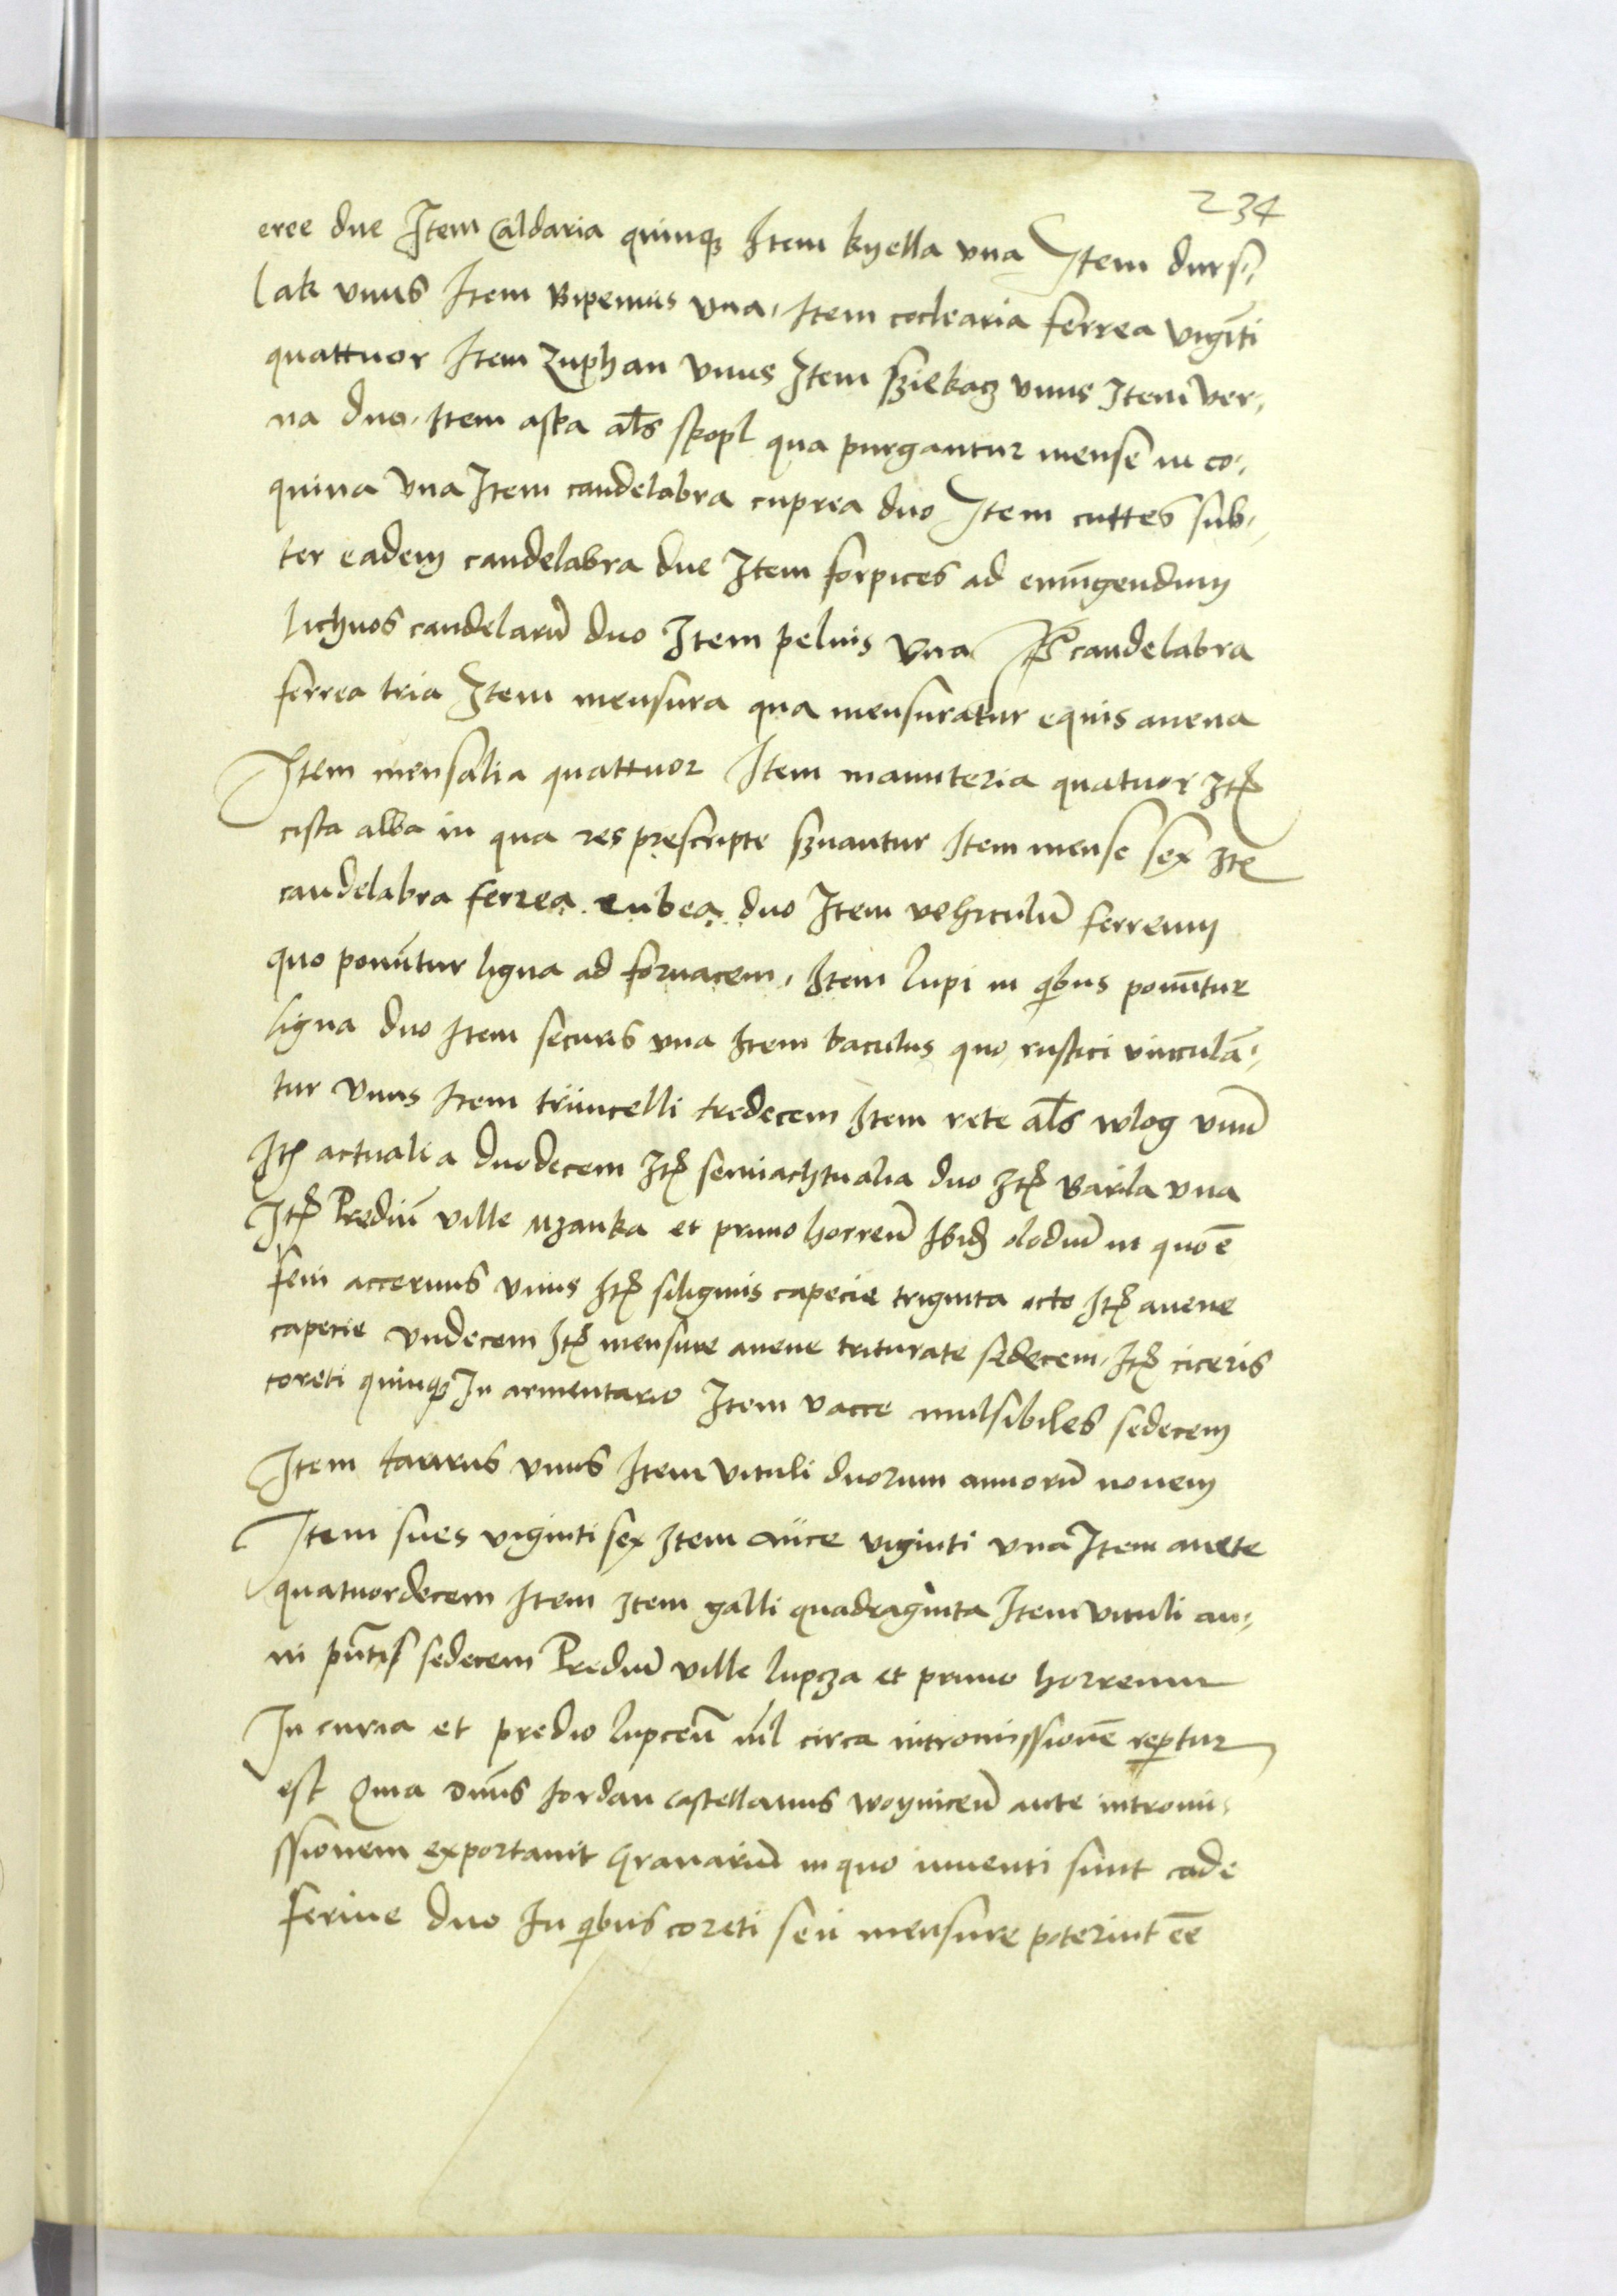 234
eree due Item Caldaria quinqȝ Item kyella vna Item durs,
lak vnus Item Bipennis vna, Item coclearia ferrea vigīti
quattuor Item zuphan vnus Item sziekacz vnus Item ver,
na duo, Item aska al̄s skopl qua purgantur mense in co,
quina vna Item candelabra cuprea duo Item cuttes sub,
ter eadem candelabra due Item forpices ad emūgendum
lichnos candelarū duo Item peluis vna candelabra
ferrea tria Item mensura qua mensuratur equis auena
Item mensalia quattuor Item manuteria quatuor Itꝫ
cista alba in qua res prescripte szuantur Item mense sex Itē
candelabra ferrea cubea duo Item vehiculū ferreum
quo ponūtur ligna ad fornacem, Item lupi in qibus ponūtur
ligna duo Item securis vna Item baculus quo rustici vinculā,
tur vnus Item trüncelli tredecem Item rete al̄s wlog vnū
Itꝫ actualia duodecem Itꝫ semiachtualia duo Itꝫ Barila vna
Itꝫ Prediū ville Uzanka et primo horreū Ibidꝫ olodiū in quo ē
feni accernus vnus Itꝫ siliginis capecie triginta octo Itꝫ auene
capecie vndecem Itꝫ mensure auene triturate sedecem, Itꝫ ciceris
coreti quinqȝ In armentario Item vacce mulsibiles sedecem
Item taurus vnus Item vituli duorum annorū nouem
Item sues viginti sex Item auce viginti vna Item anete
quatuordecem Item Item galli quadraginta Item vituli an,
ni pn̄tis sedecem Prediū ville lupcza et primo horreum
In curia et predio lupceū nīl circa intromissionē repertur
est Quia dn̄us Jordan castellanus woyniceū ante intromi,
ssionem exportauit Granariū in quo inuenti sunt cade
ferine duo In qibus coreti seu mensure poterint eē